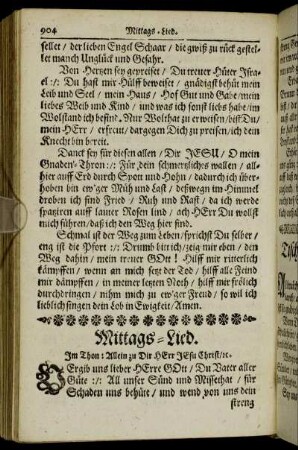 904 Mittags-Lied.
sellet / der lieben Engel Schaar / die gwiß zu rück gestel-
let manch Unglück und Gefahr.
Von Hertzen sey gepreiset / Du treuer Hüter Jsra-
el :/: Du hast mir Hülff beweiset / gnädigst behüt mein
Leib und Seel / mein Haus / Hof Gut und Gabe / mein
liebes Weib und Kind / und was ich sonst liebs habe / im
Wolstand ich befind. Nur Wolthat zu erweisen / bist Du /
mein HErr / erfreut / dargegen Dich zu preisen / ich dein
Knecht bin bereit.
Danck sey für diesen allen / Dir JESU / O mein
Gnaden-Thron :/: Für dein schmertzlichs wallen / all-
hier auff Erd durch Spott und Hohn / dadurch ich über-
hoben bin ew'ger Müh und Last / deßwegn im Himmel
droben ich sind Fried / Ruh und Rast / da ich werde
spatziren auff lauter Rosen lind / ach HErr Du wollst
mich führen / daß ich den Weg hier find.
Schmal ist der Weg zum Leben / sprichst Du selber /
eng ist die Pfort :/: Drumb bin ich / zeig mir eben / den
Weg dahin / mein treuer GOtt ! Hilff mir ritterlich
kämpffen / wenn an mich setz der Tod / hilff alle Feind
mir dämpffen / in meiner letzten Noth / hilff mir frölich
durchdringen / nihm mich zu ew'ger Freud / so wil ich
lieblich singen dein Lob in Ewigkeit / Amen.
Mittags-Lied.
Im Thon: Allein zu Dir HErr JEsu Christ / etc.
VErgib uns lieber HErre GOtt / Du Vater aller
Güte :/: All unser Sünd und Missethat / für
Schaden uns behüte / und wend von uns dein
streng